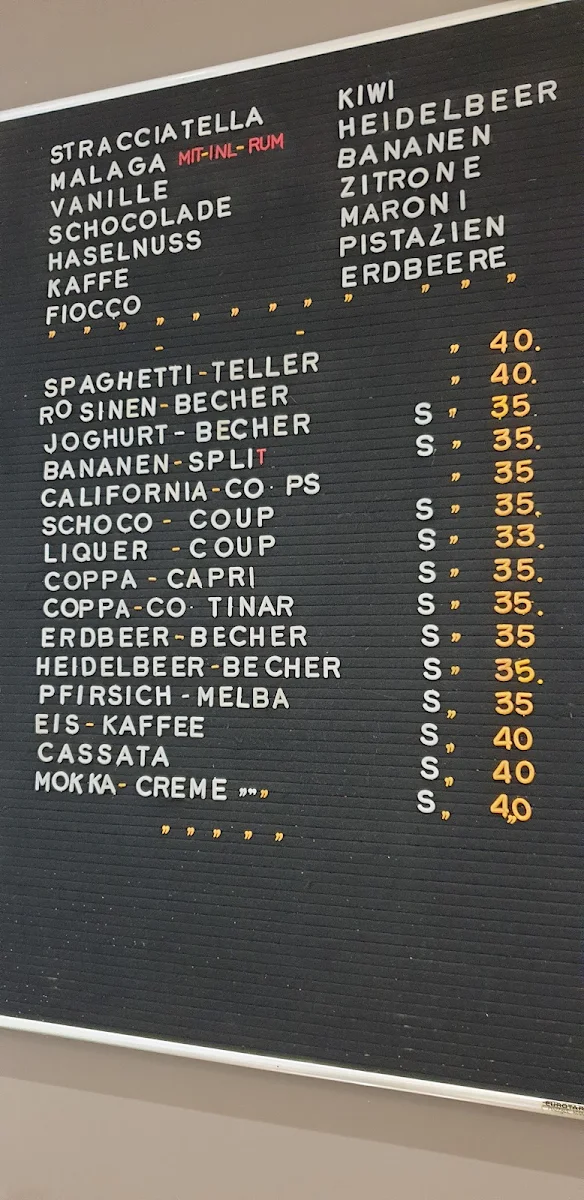 STRACCIATELLA KIWI
MALAGA MIT-INL-RUM HEIDELBEER
VANILLE BANANEN
SCHOCOLADE ZITRONE
HASELNUSS MARONI
KAFFE PISTAZIEN
FIOCCO ERDBEERE
" " " " " " " " " " " "
- -
SPAGHETTI-TELLER " 40.
ROSINEN-BECHER " 40.
JOGHURT-BECHER S " 35.
BANANEN-SPLIT S " 35.
CALIFORNIA-CO PS " 35
SCHOCO - COUP S " 35.
LIQUER - COUP S " 33.
COPPA - CAPRI S " 35.
COPPA-CO TINAR S " 35.
ERDBEER-BECHER S " 35
HEIDELBEER-BECHER S " 35.
PFIRSICH - MELBA S " 35
EIS-KAFFEE S " 40
CASSATA S " 40
MOKKA-CREME """ S " 40
" " " " "